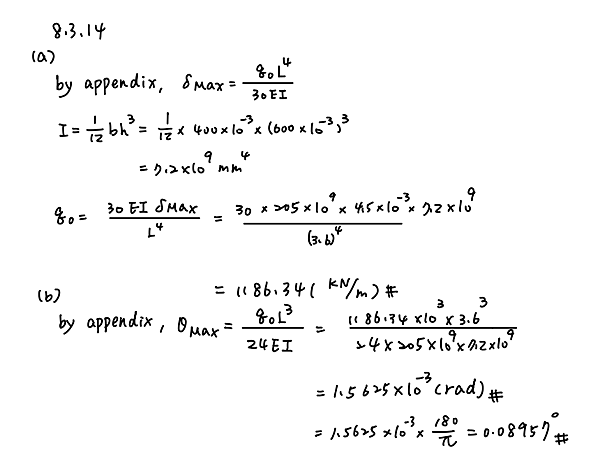 8.3.14
(a)
by appendix, δmax = q₀L⁴ / 30EI
I = 1/12 bh³ = 1/12 × 400×10⁻³ × (600×10⁻³)³
= 7.2×10⁹ mm⁴
q₀ = 30 EI δmax / L⁴ = 30 × 205×10⁹ × 4.5×10⁻³ × 7.2×10⁹ / (3.6)⁴
= 1186.34 (kN/m) #
(b)
by appendix, θmax = q₀L³ / 24EI = 1186.34×10³ × 3.6³ / 24×205×10⁹×7.2×10⁹
= 1.5625×10⁻³ (rad) #
= 1.5625×10⁻³ × 180/π = 0.08957° #